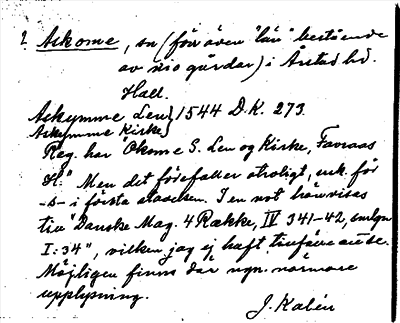 2 Askome, sn (förr även "län" bestående
av nio gårdar) i Årstad hd.
Hall.
Askymme Len } 1544 D.K. 273.
Askymme Kirke
Reg. har "Okome S. Len og Kirke, Fauraas
H." Men det förefaller otroligt, ink. för
-s- i första stavelsen. I en not hänvisas
till "Danske Mag. 4 Række, IV 341-42, smlgn
I:34", vilken jag ej haft tillfälle att se.
Möjligen finns där ngn. närmare
upplysning.
J. Kalén